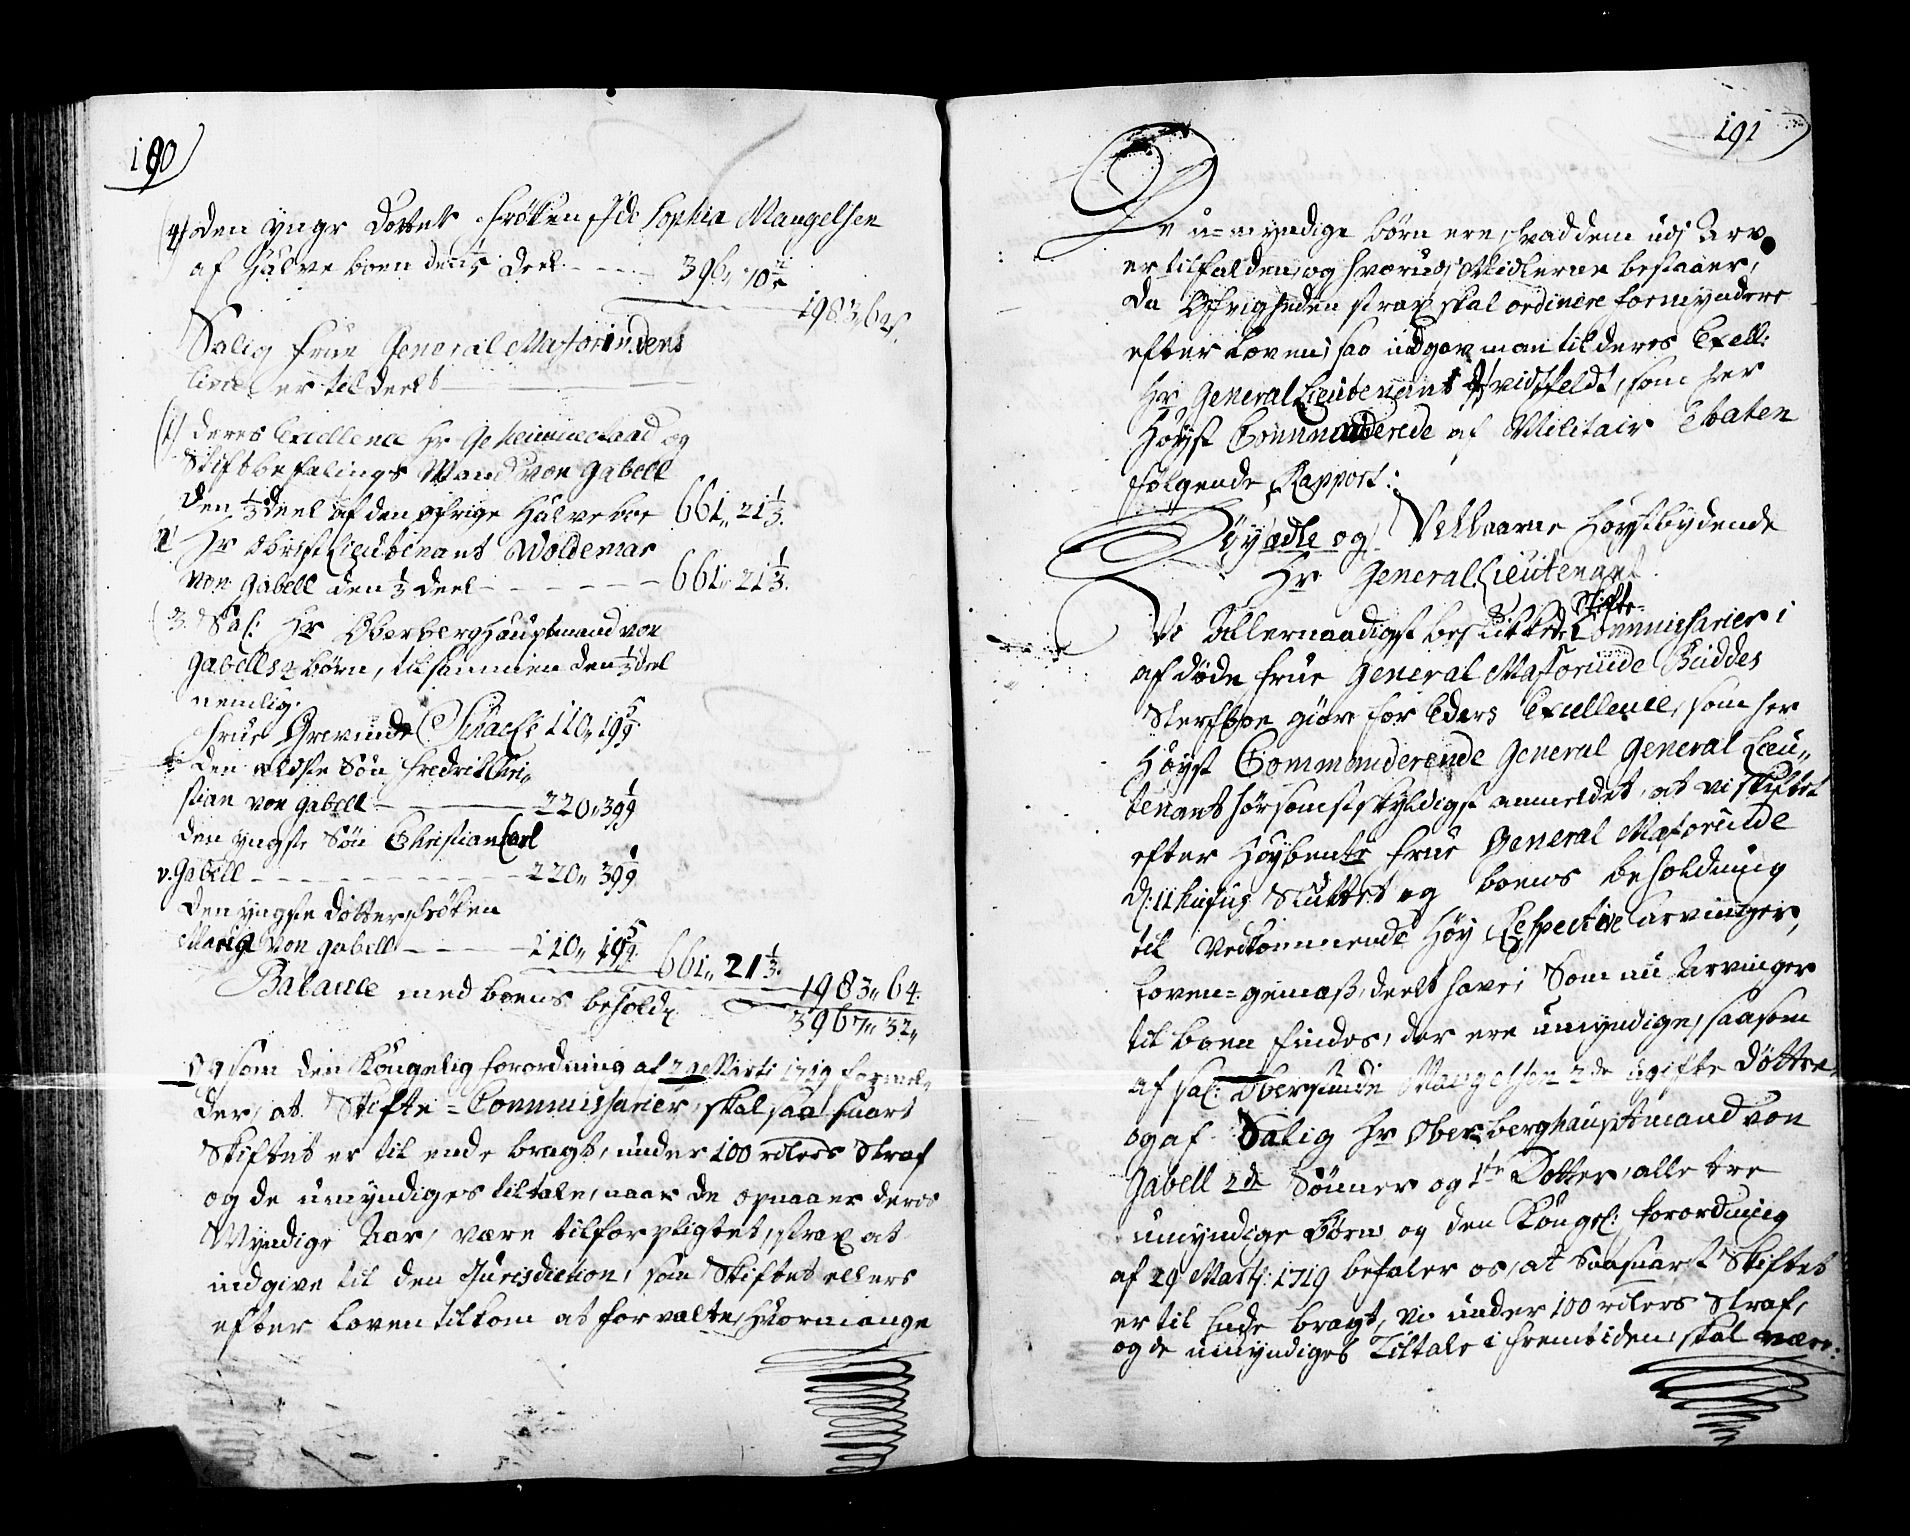 190
(4) Den yngr Dotter Frøken Ide Sophia Mangelsen
af halve boen den 1/5 Deel - - - - 396,, 70 2/5
1983,, 64.
Salig Frue General Majorindens
Linie er tildeelt
(1) Deres Excellence Hr Geheimeraad og
Stiftbefalings Mand von Gabell
den 1/3 deel af den øfrige Halve boe 661,, 21 1/3.
2 Hr Obrist Lieutenant Woldemar
von Gabell den 1/3 deel - - - - - 661,, 21 1/3.
(3. Sal: Hr Oberberghauptmand von
Gabells børn, tilsammen den 1/3 deel
nemlig.
Frue Grevinde Schack 110,, 19 5/9.
den ældste Søn Fredrik Chri,,
stian von Gabell - - 220,, 39 1/9
den yngste Søn Christian Carl
v. Gabell - - - - - - - - 220,, 39 1/9
Den yngste dotter Frøken
Maria von Gabell - - - - 110,, 19 5/9. 661,, 21 1/3.
1983,, 64.
Balance med boens behold: 3967,, 32,,
Og som den Kongelig forordning af 29 Marti 1719 formel,,
der, at Skifte-Commissarier, skal saa snart
Skiftet er til ende bragt, under 100 rdlers Straf
og de umyndiges tiltale, naar de opnaaer deres
Myndige Aar, være tilforpligtet, strax at
indgive til den Jurisdiction, som Skiftet ellers
efter Loven tilkom at forvalte, hvormange
191
De u-myndige børn ere, hvad dem udj Arv
er tilfalden, og hvorudj Midlerne bestaaer,
da Øfrigheden strax skal ordinere Formyndere
efter Loven; saa indgav man til deres Excell:
Hr General Lieutenant Hvidtfeldt, som her
Høyst Commanderede af Militair Etaten
følgende Rapport:
Høyædle og Velbaarne Høystbydende
Hr General Lieutenant.
Vi Allernaadigst beskikkede Skifte-Commissarier i
afdøde Frue General Majorinde Buddes
Sterfboe giør for Eders Excellence, som her
Høyst Commanderende General General Lieu,,
tenant hørsomst skyldigst anmeldet, at vi skiftet
efter Høybente Frue General Majorinde
d: 11 hujus Sluttet og boens beholdning
til Vedkommende Høy Respective Arvinger,
Loven-gemæß, deelt have; Som nu Arvinger
til boen findes, der ere umyndige, saasom
af Sal: Obersinde Mangelsen 2de ugifte Døttre,
og af Salig Hr Oberberghauptmand von
Gabell 2de Sønner og 1te Dotter, alle tre
umyndige Børn og den Kongel: forordning
af 29 Martj: 1719 befaler os, at saasnart Skiftet
er til Ende bragt, vi under 100 rdlers Straf,
og de umyndiges Tiltale i fremtiden, skal være: